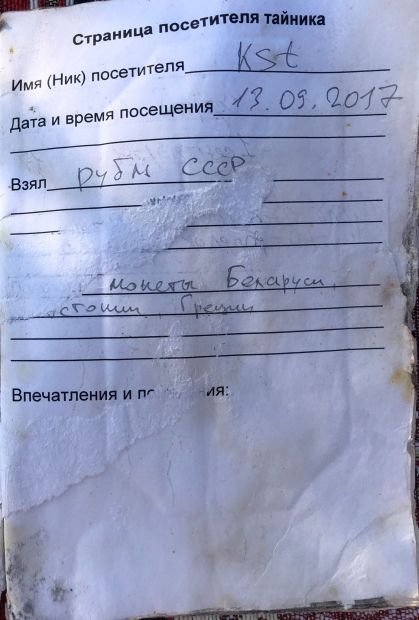 Страница посетителя тайника
Имя (Ник) посетителя KSt
Дата и время посещения 13.09.2017
Взял рубль СССР
монеты Беларуси,
Эстонии, Греции
Впечатления и